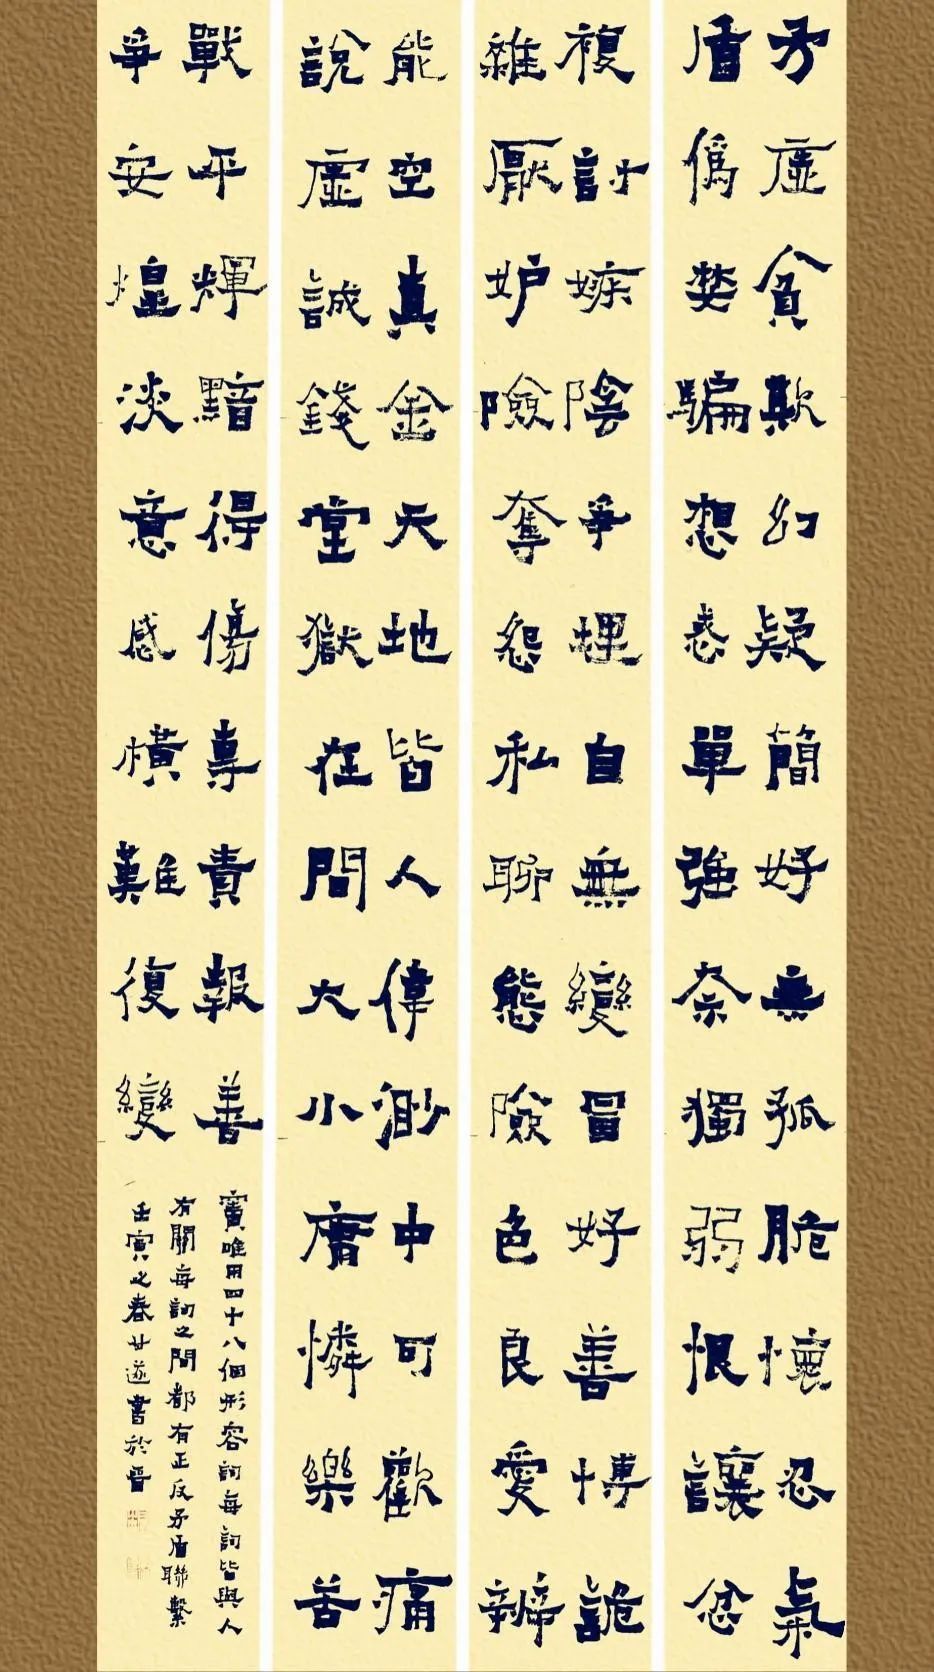 矛盾
虛偽
貪婪
欺騙
幻想
疑惑
簡單
好強
無奈
孤獨
脆弱
懷恨
忍讓
氣忿
複雜
討厭
嫉妒
陰險
爭奪
埋怨
自私
無聊
變態
冒險
好色
善良
博愛
詭辯
能說
空虛
真誠
金錢
天堂
地獄
皆在
人間
偉大
渺小
中庸
可憐
歡樂
痛苦
戰爭
平安
輝煌
黯淡
得意
傷感
專橫
責難
報復
善變
竇唯用四十八個形容詞每詞皆與人
有關每詞之間都有正反矛盾聯繫
壬寅之春書於晉